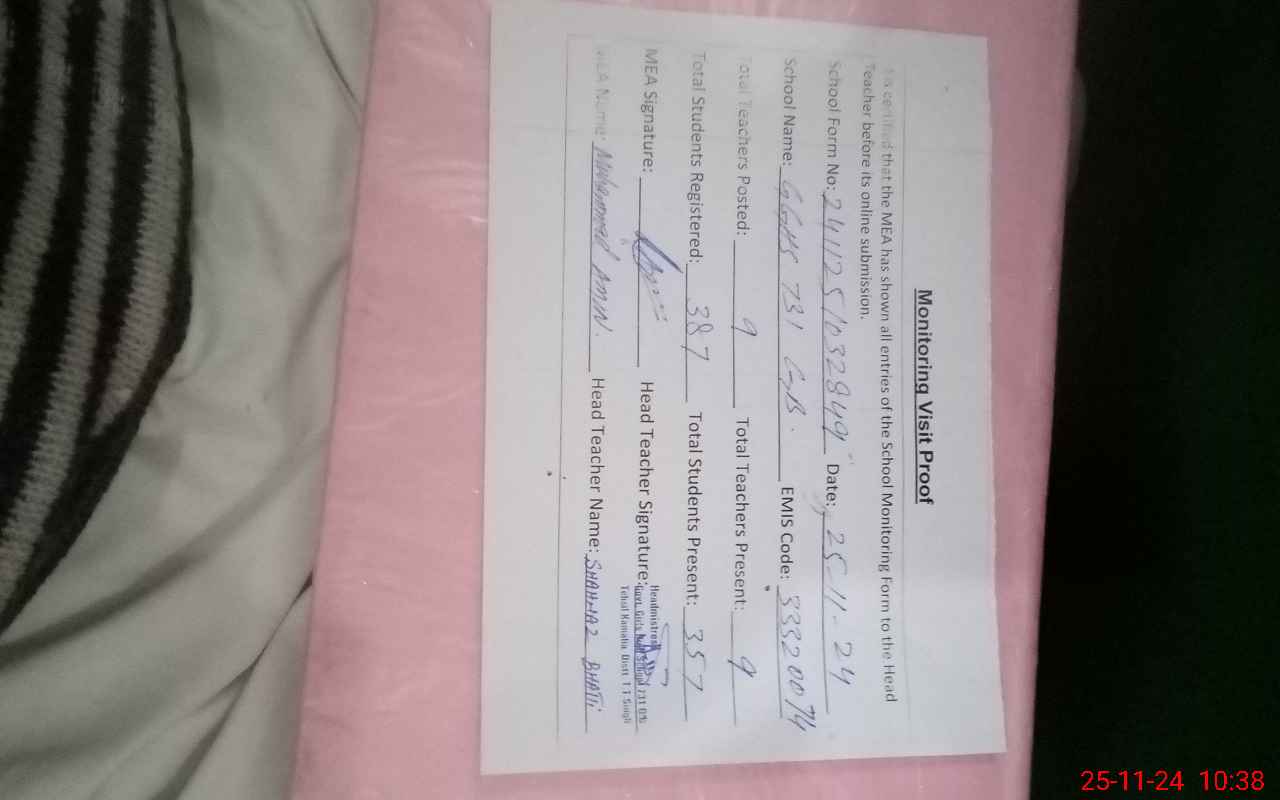 Monitoring Visit Proof
It is certified that the MEA has shown all entries of the School Monitoring Form to the Head
Teacher before its online submission.
School Form No: 2411251032849 Date: 25-11-24
School Name: GGHS 731 GB. EMIS Code: 33320074
Total Teachers Posted: 9 Total Teachers Present: 9
Total Students Registered: 387 Total Students Present: 357
MEA Signature: Head Teacher Signature:
Headmistress
Govt. Girls High School 731 GB
Tehsil Kamalia Distt T.T Singh
MEA Name: Muhammad Amin. Head Teacher Name: SHAHNAZ BHATTI
25-11-24 10:38